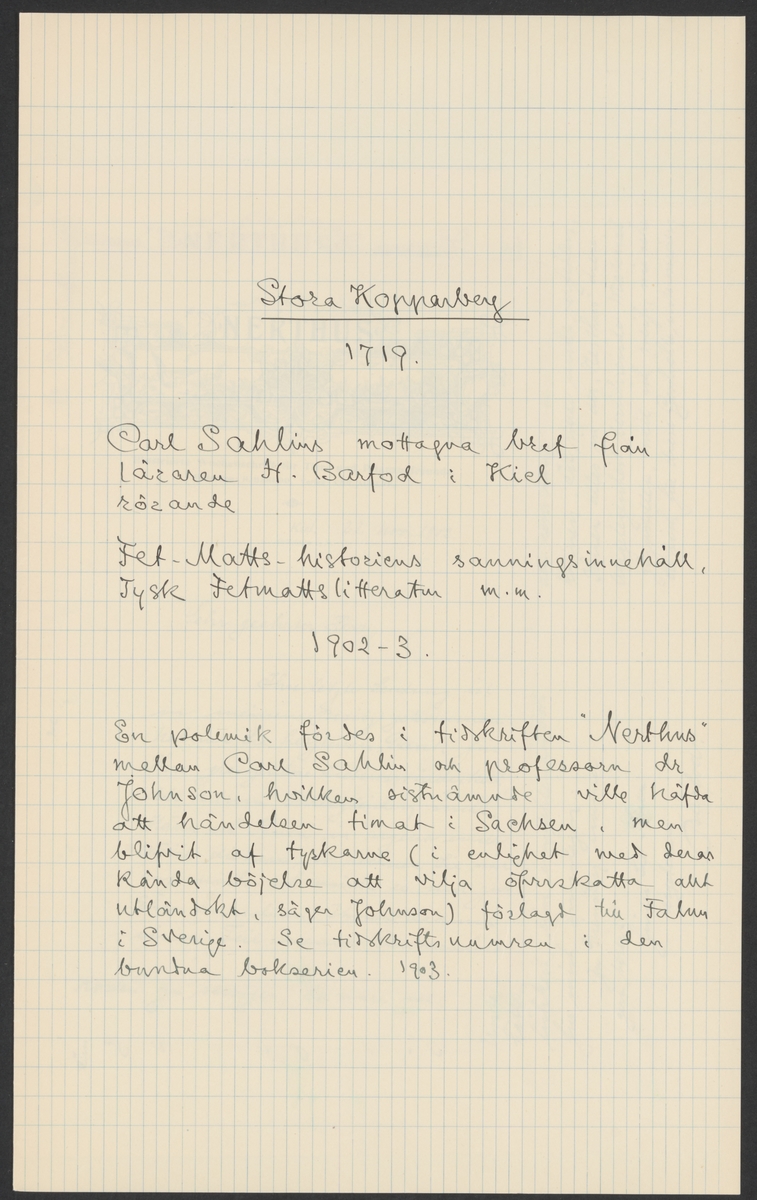 Stora Kopparberg
1719.
Carl Sahlins mottagna bref från
läraren H. Barfod i Kiel
rörande
Fet-Matts-historiens sanningsinnehåll,
Tysk Fetmattslitteratur m.m.
1902-3.
En polemik fördes i tidskriften "Nerthus"
mellan Carl Sahlin och professorn dr
Johnson, hvilken sistnämnde ville häfda
att händelsen timat i Sachsen, men
blifvit af tyskarne (i enlighet med deras
kända böjelse att vilja öfverskatta allt
utländskt, säger Johnson) förlagd till Falun
i Sverige. Se tidskriftsnumren i den
bundna bokserien. 1903.